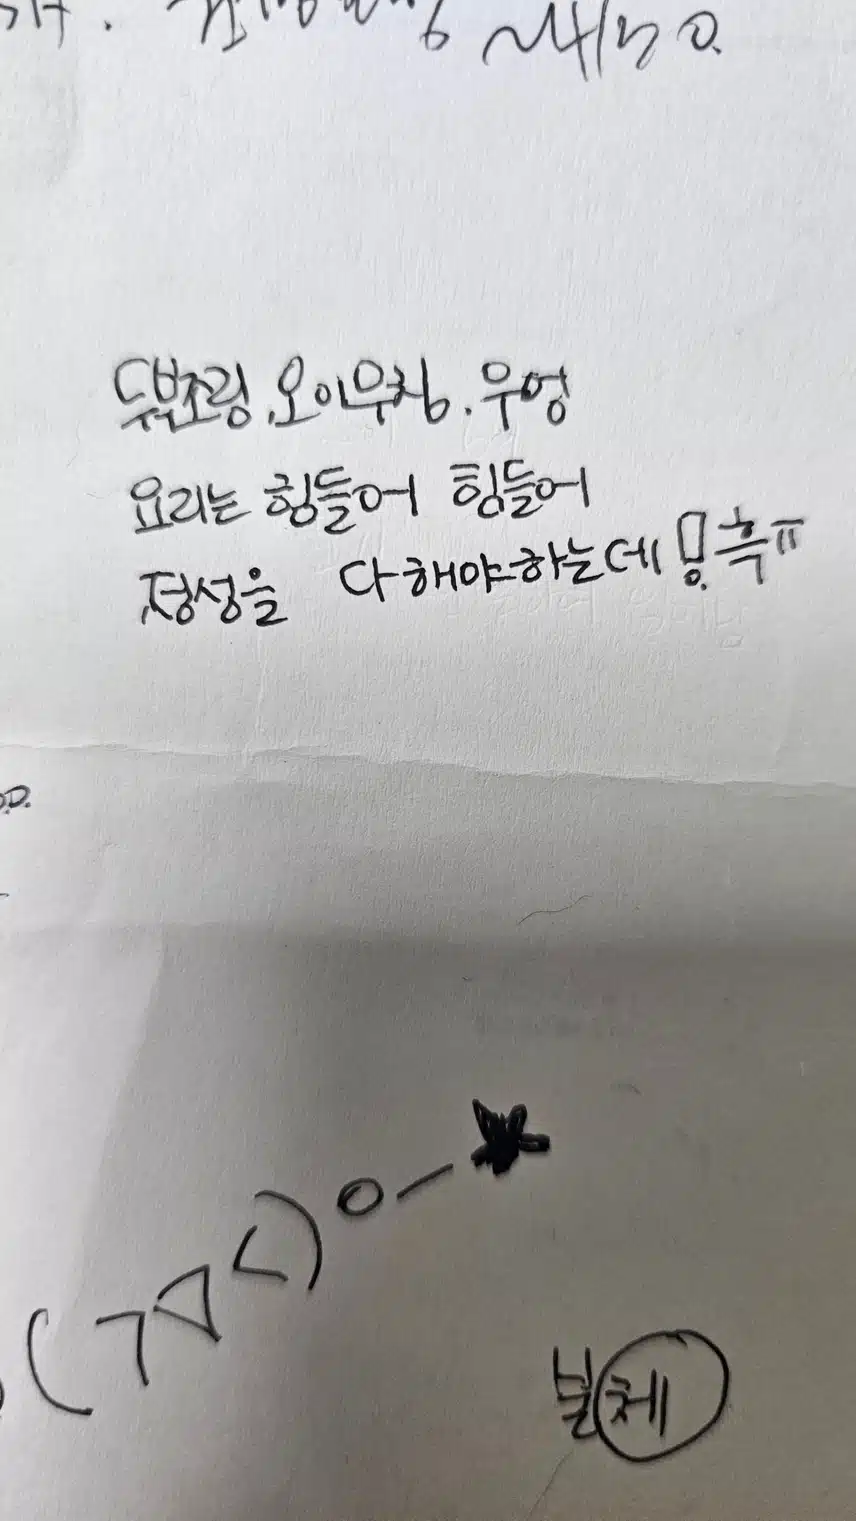 두부조림.오이무침.우엉
요리는 힘들어 힘들어
정성을 다해야하는데 흑ㅠ
(ㄱ▽<)o-★
체